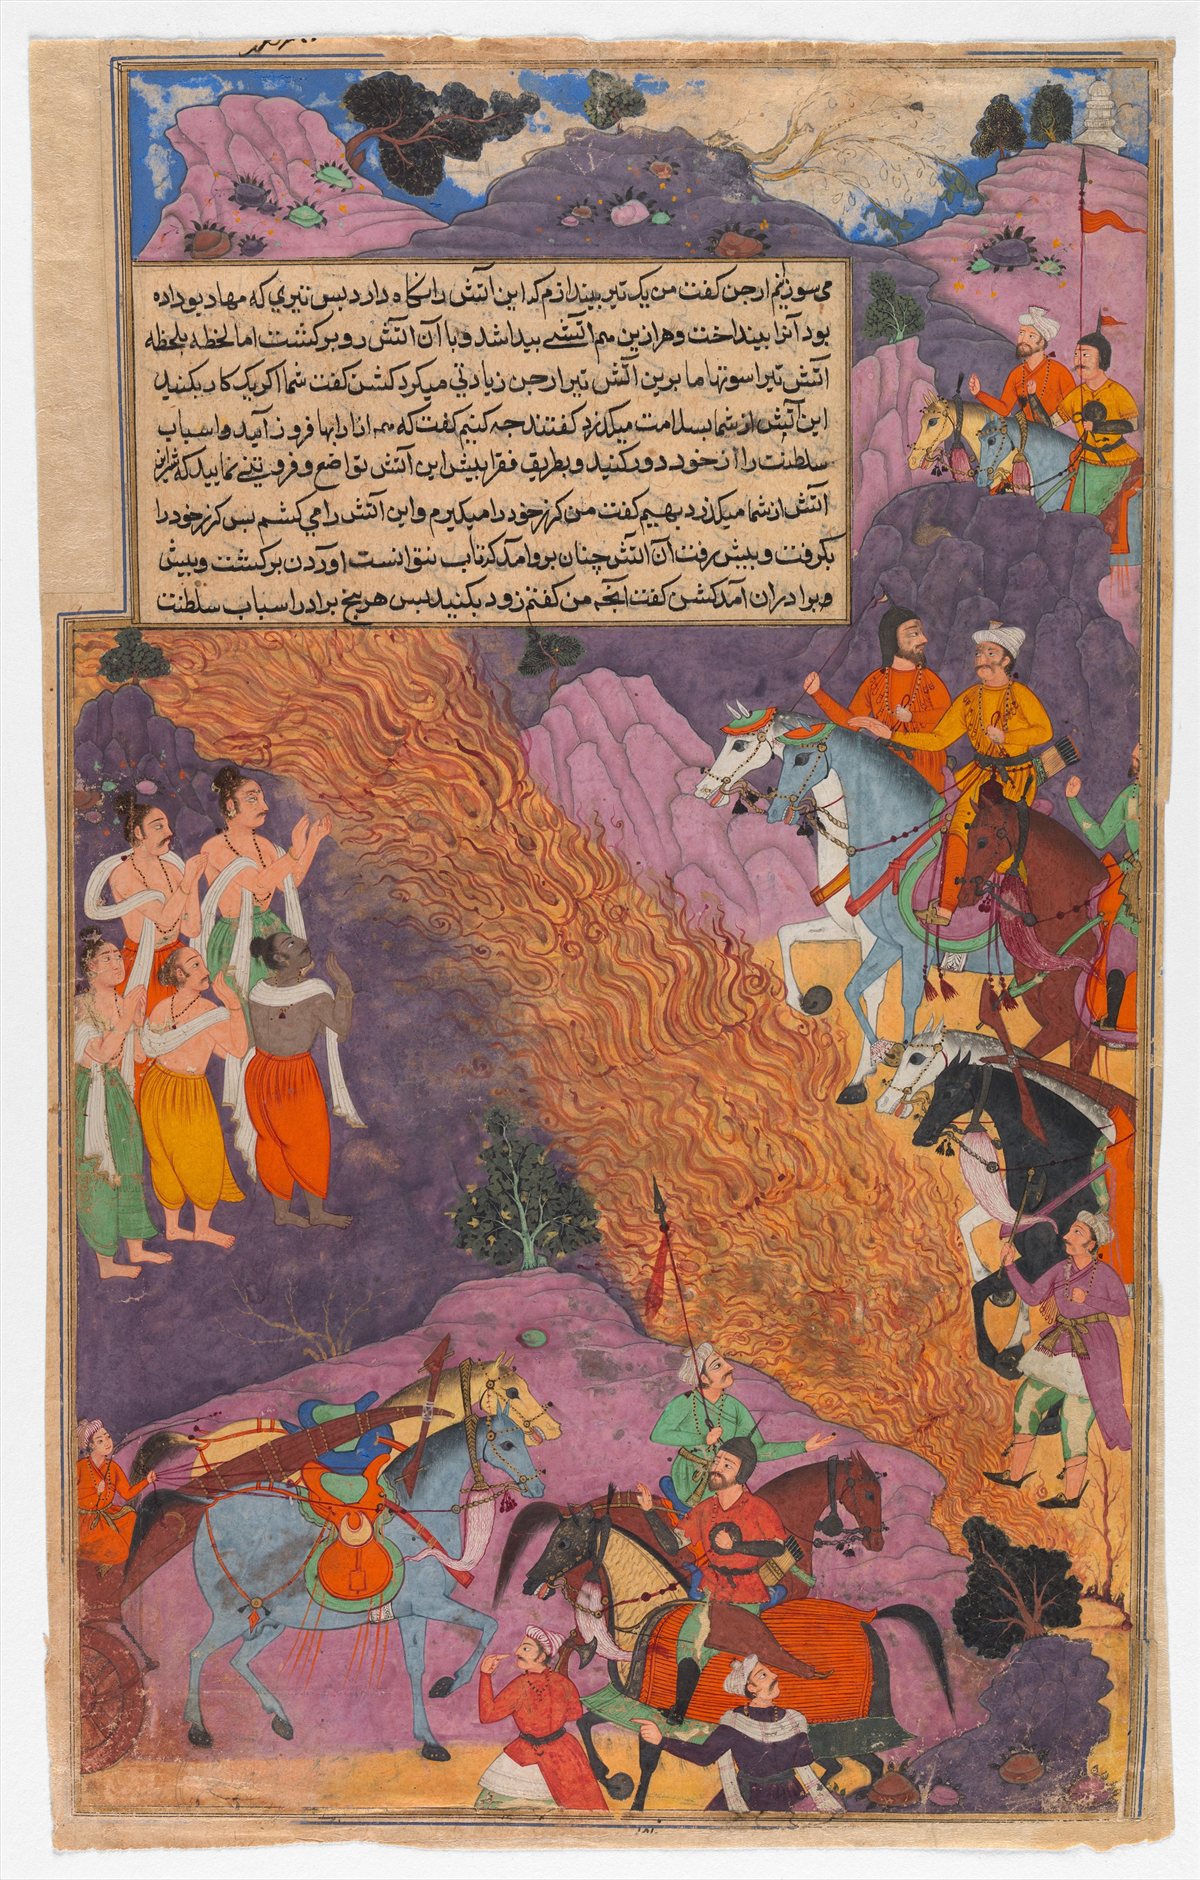 می سوزیم ارجن گفت من یک تیر بیندازم که این آتش را نکاه دارد بس تیری که مهادیو داده
بود آنرا بینداخت و هر ازین مهم آتشی بیدا شد و با آن آتش رو بر کشت اما لحظه بلحظه
آتش تیرا سوتها ما برین آتش تیر ارجن زیادتی میکرد کشن کفت شما اکر یک کار بکنید
این آتش از شما بسلامت میکذرد کفتند جه کنیم کفت که همه از ارابها فرود آیید و اسباب
سلطنت را از خود دور کنید و بطریق فقرا بیش این آتش تواضع و فروتنی نمایید که شر این
آتش از شما میکذرد بهیم کفت من کرز خود را میکیرم و این آتش را می کشم بس کرز خود را
بکرفت و بیش رفت آن آتش چنان برو آمد که تاب نتوانست آوردن بر کشت و بیش
برادران آمد کشن کفت آنچه من کفتم زود بکنید بس هر بنج برادر اسباب سلطنت